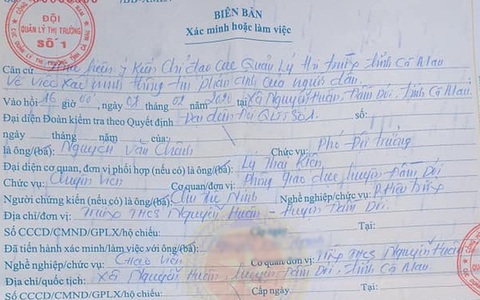 ĐỘI
QUẢN LÝ THỊ TRƯỜNG
SỐ 1
BIÊN BẢN
Xác minh hoặc làm việc
Căn cứ Thực hiện ý kiến chỉ đạo cục Quản Lý thị trường tỉnh Cà Mau
Về việc xác minh thông tin phản ánh của người dân.
Vào hồi 16 giờ 00', ngày 03/02/2020 tại Xã Nguyễn Huân, Đầm Dơi, tỉnh Cà Mau.
Đại diện Đoàn kiểm tra theo Quyết định Đại diện Đội QLTT số 1 số:
ngày tháng năm của:
là ông/(bà): Nguyễn Văn Chánh Chức vụ: Phó Đội trưởng
Đại diện cơ quan, đơn vị phối hợp (nếu có) là ông/(bà) Lý Thái Kiên
Chức vụ: Chuyên viên Cơ quan/đơn vị: Phòng giáo dục huyện Đầm Dơi
Người chứng kiến (nếu có) là ông/(bà): Ninh Nghề nghiệp/chức vụ:
Địa chỉ/đơn vị: Trường THCS Nguyễn Huân - Huyện Đầm Dơi.
Số CCCD/CMND/GPLX/hộ chiếu: Tại:
Đã tiến hành xác minh/làm việc với ông/(bà):
Nghề nghiệp/chức vụ: Giáo viên Cơ quan/đơn vị: Trường THCS Nguyễn Huân
Địa chỉ/quốc tịch: Xã Nguyễn Huân, huyện Đầm Dơi, tỉnh Cà Mau.
Số CCCD/CMND/GPLX/hộ chiếu: Cấp ngày: Tại: